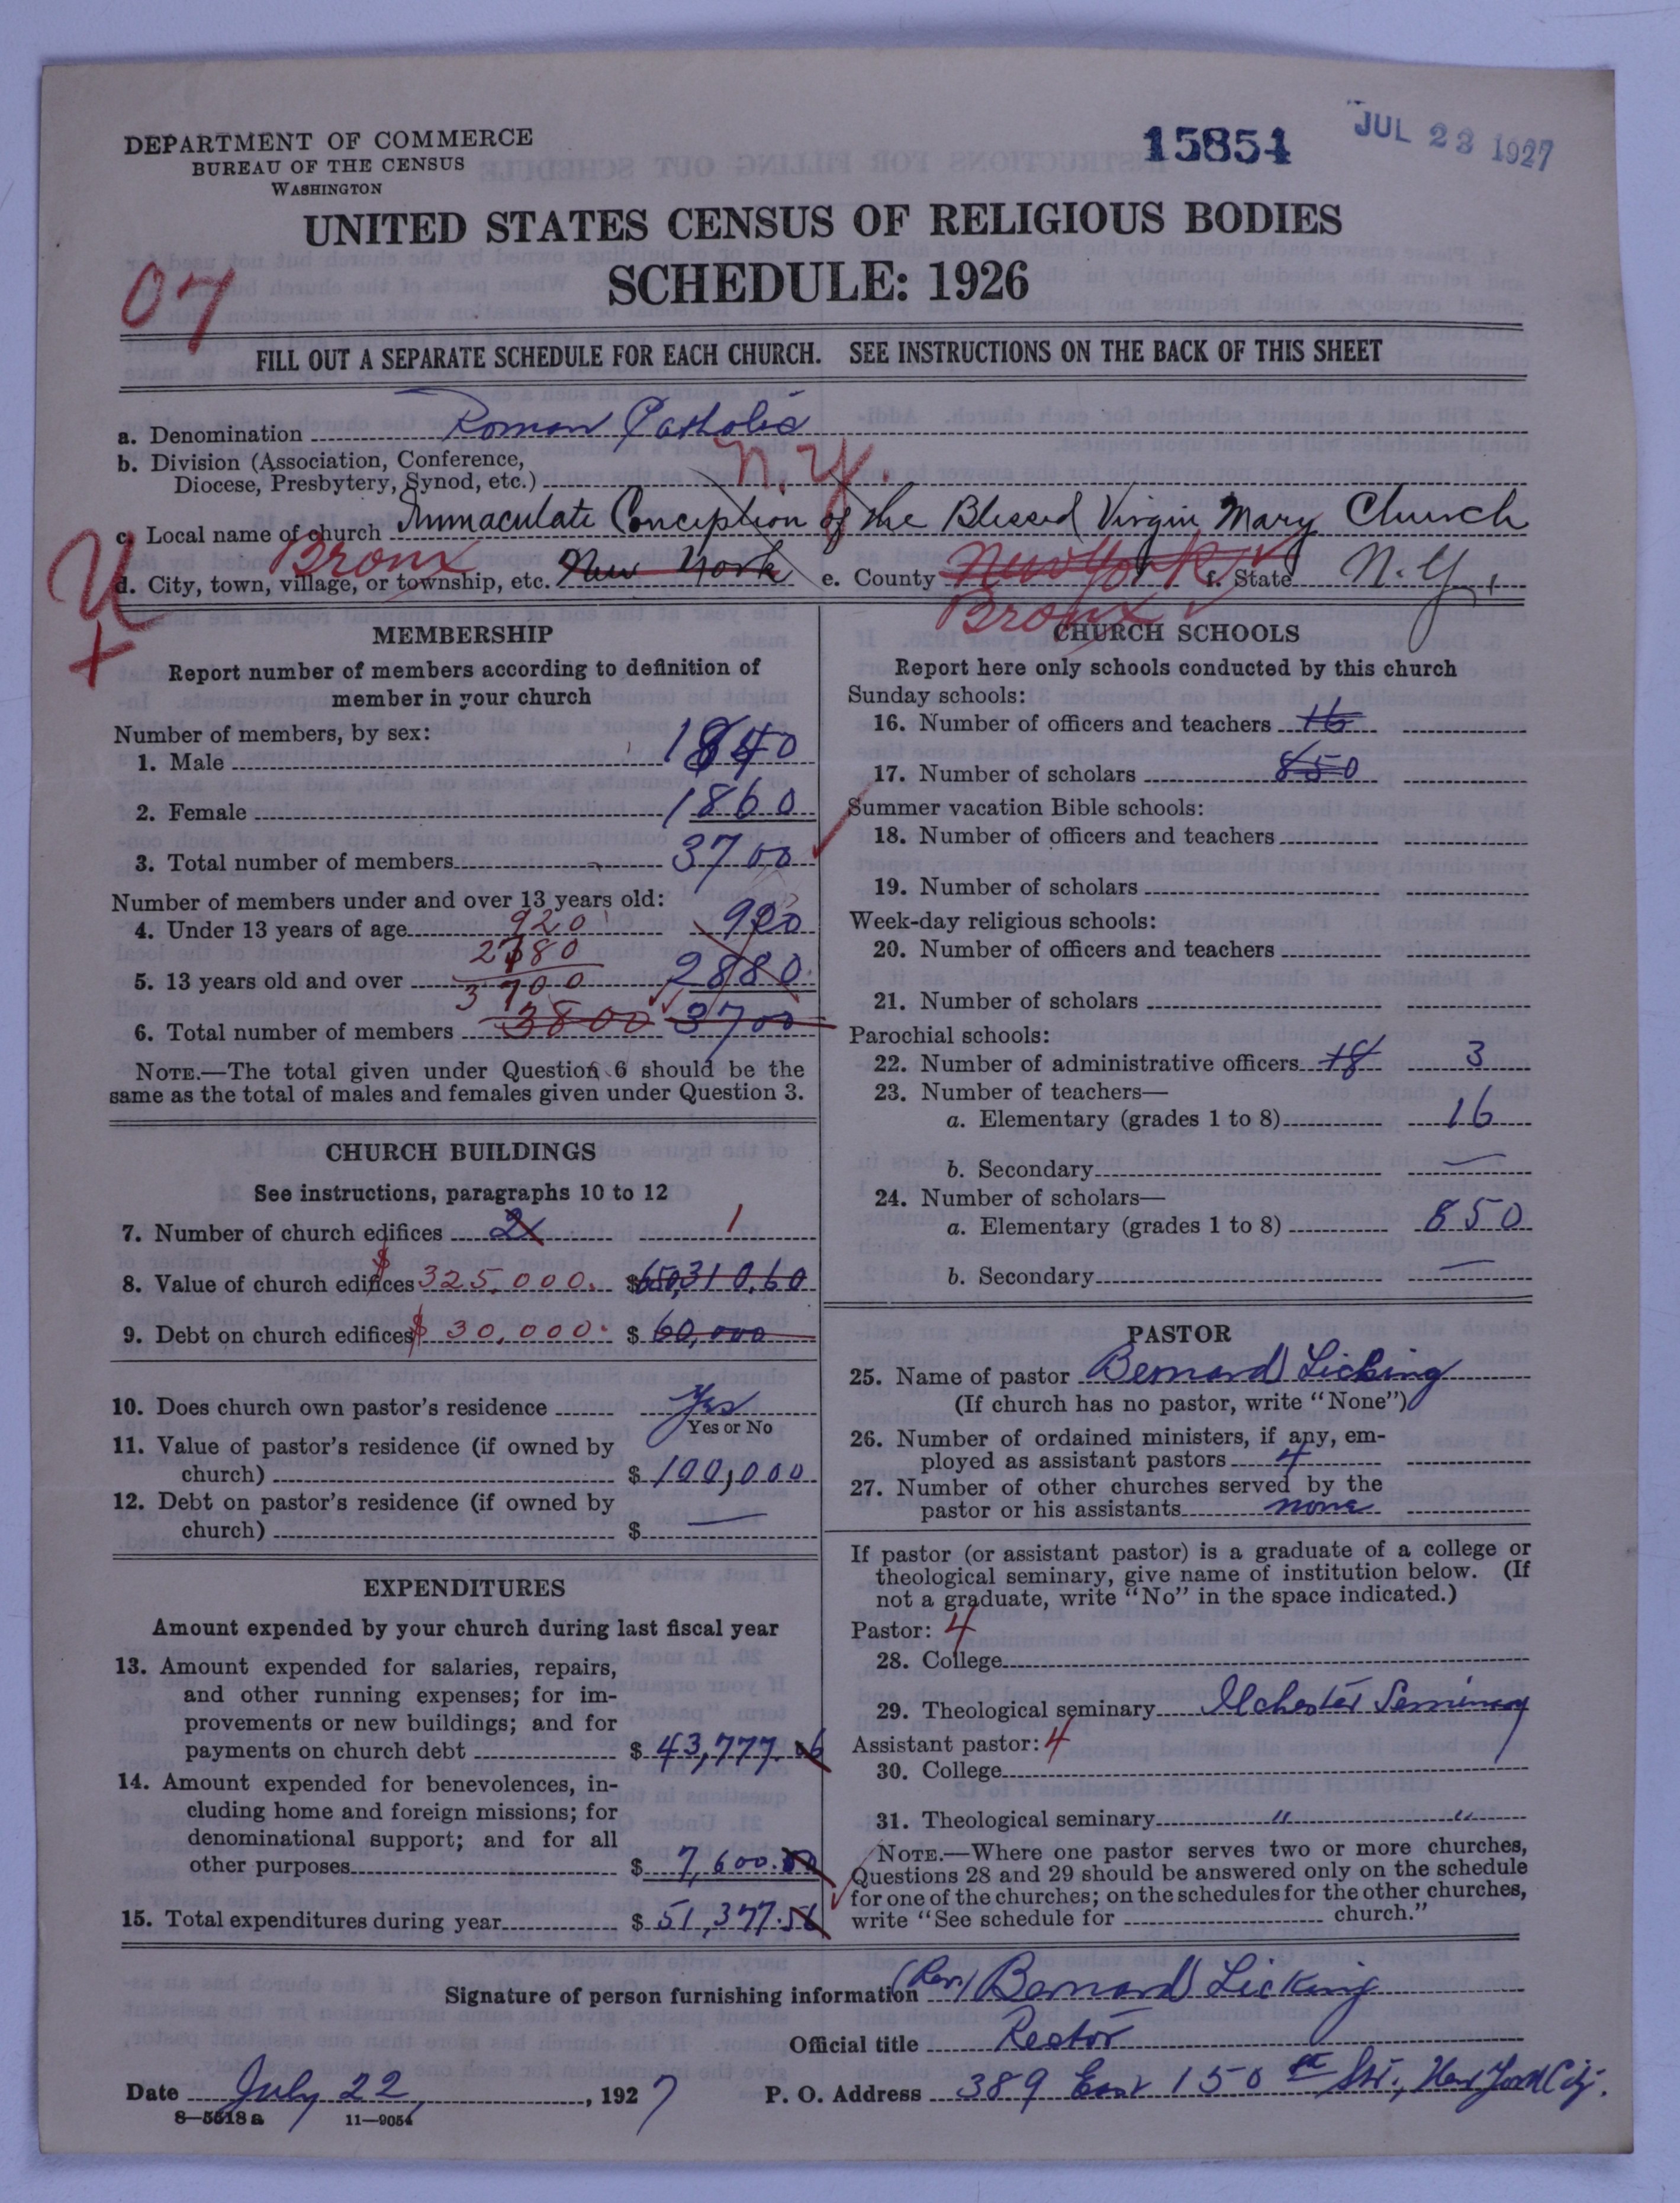 DEPARTMENT OF COMMERCE
BUREAU OF THE CENSUS
WASHINGTON
15854
JUL 23 1927
UNITED STATES CENSUS OF RELIGIOUS BODIES
SCHEDULE: 1926
07
FILL OUT A SEPARATE SCHEDULE FOR EACH CHURCH. SEE INSTRUCTIONS ON THE BACK OF THIS SHEET
a. Denomination Roman Catholic
b. Division (Association, Conference,
Diocese, Presbytery, Synod, etc.) N.Y.
c. Local name of church Immaculate Conception of the Blessed Virgin Mary Church
Bronx
d. City, town, village, or township, etc. New York e. County New York f. State N.Y.
Bronx
U
+
MEMBERSHIP
Report number of members according to definition of
member in your church
Number of members, by sex:
1. Male 1840
2. Female 1860
3. Total number of members 3700
Number of members under and over 13 years old:
4. Under 13 years of age 920 920
5. 13 years old and over 2780 2880
3700
6. Total number of members 3800 3700
NOTE.—The total given under Question 6 should be the
same as the total of males and females given under Question 3.
CHURCH BUILDINGS
See instructions, paragraphs 10 to 12
7. Number of church edifices 2 1
8. Value of church edifices $325,000. $650,310.60
9. Debt on church edifices $30,000. $60,000
10. Does church own pastor's residence Yes
Yes or No
11. Value of pastor's residence (if owned by
church) $100,000
12. Debt on pastor's residence (if owned by
church) $ —
EXPENDITURES
Amount expended by your church during last fiscal year
13. Amount expended for salaries, repairs,
and other running expenses; for im-
provements or new buildings; and for
payments on church debt $43,777.
14. Amount expended for benevolences, in-
cluding home and foreign missions; for
denominational support; and for all
other purposes $7,600.
15. Total expenditures during year $51,377.56
CHURCH SCHOOLS
Report here only schools conducted by this church
Sunday schools:
16. Number of officers and teachers 16
17. Number of scholars 850
Summer vacation Bible schools:
18. Number of officers and teachers
19. Number of scholars
Week-day religious schools:
20. Number of officers and teachers
21. Number of scholars
Parochial schools:
22. Number of administrative officers 18 3
23. Number of teachers—
a. Elementary (grades 1 to 8) 16
b. Secondary —
24. Number of scholars—
a. Elementary (grades 1 to 8) 850
b. Secondary —
PASTOR
25. Name of pastor Bernard Licking
(If church has no pastor, write "None")
26. Number of ordained ministers, if any, em-
ployed as assistant pastors 4
27. Number of other churches served by the
pastor or his assistants none
If pastor (or assistant pastor) is a graduate of a college or
theological seminary, give name of institution below. (If
not a graduate, write "No" in the space indicated.)
Pastor: 4
28. College
29. Theological seminary Ilchester Seminary
Assistant pastor: 4
30. College
31. Theological seminary " "
NOTE.—Where one pastor serves two or more churches,
Questions 28 and 29 should be answered only on the schedule
for one of the churches; on the schedules for the other churches,
write "See schedule for church."
Signature of person furnishing information (Rev.) Bernard Licking
Official title Rector
Date July 22, 1927 P. O. Address 389 East 150th Str., New York City.
8—5518a 11—9054